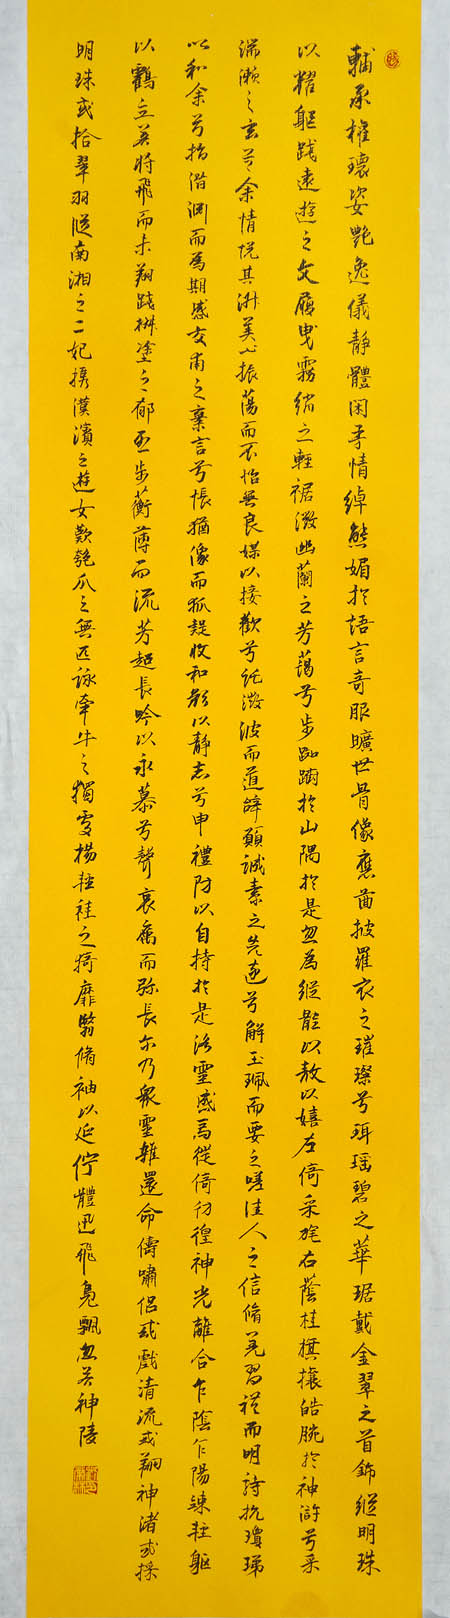 輔承權瓌姿艷逸儀靜體閑柔情綽態媚於語言奇服曠世骨像應圖披羅衣之璀璨兮珥瑶碧之華琚戴金翠之首飾綴明珠
以耀軀踐遠遊之文履曳霧綃之輕裾微幽蘭之芳藹兮步踟躕於山隅於是忽焉縱體以敖以嬉左倚采旄右蔭桂旗攘皓腕於神滸兮采
湍瀨之玄芝余情悅其淑美心振蕩而不怡無良媒以接歡兮託微波而通辭願誠素之先達兮解玉珮而要之嗟佳人之信脩羌習禮而明詩抗瓊珶
以和余兮指潛淵而爲期感交甫之棄言兮悵猶像而狐疑收和顏以靜志兮申禮防以自持於是洛靈感焉徙倚彷徨神光離合乍陰乍陽竦輕軀
以鶴立若將飛而未翔踐椒塗之郁烈步蘅薄而流芳超長吟以永慕兮聲哀厲而彌長尔乃衆靈雜遝命儔嘯侶或戲清流或翔神渚或採
明珠或拾翠羽從南湘之二妃攜漢濱之遊女歎匏瓜之無匹詠牽牛之獨處揚輕袿之猗靡翳脩袖以延佇體迅飛鳧飄忽若神陵